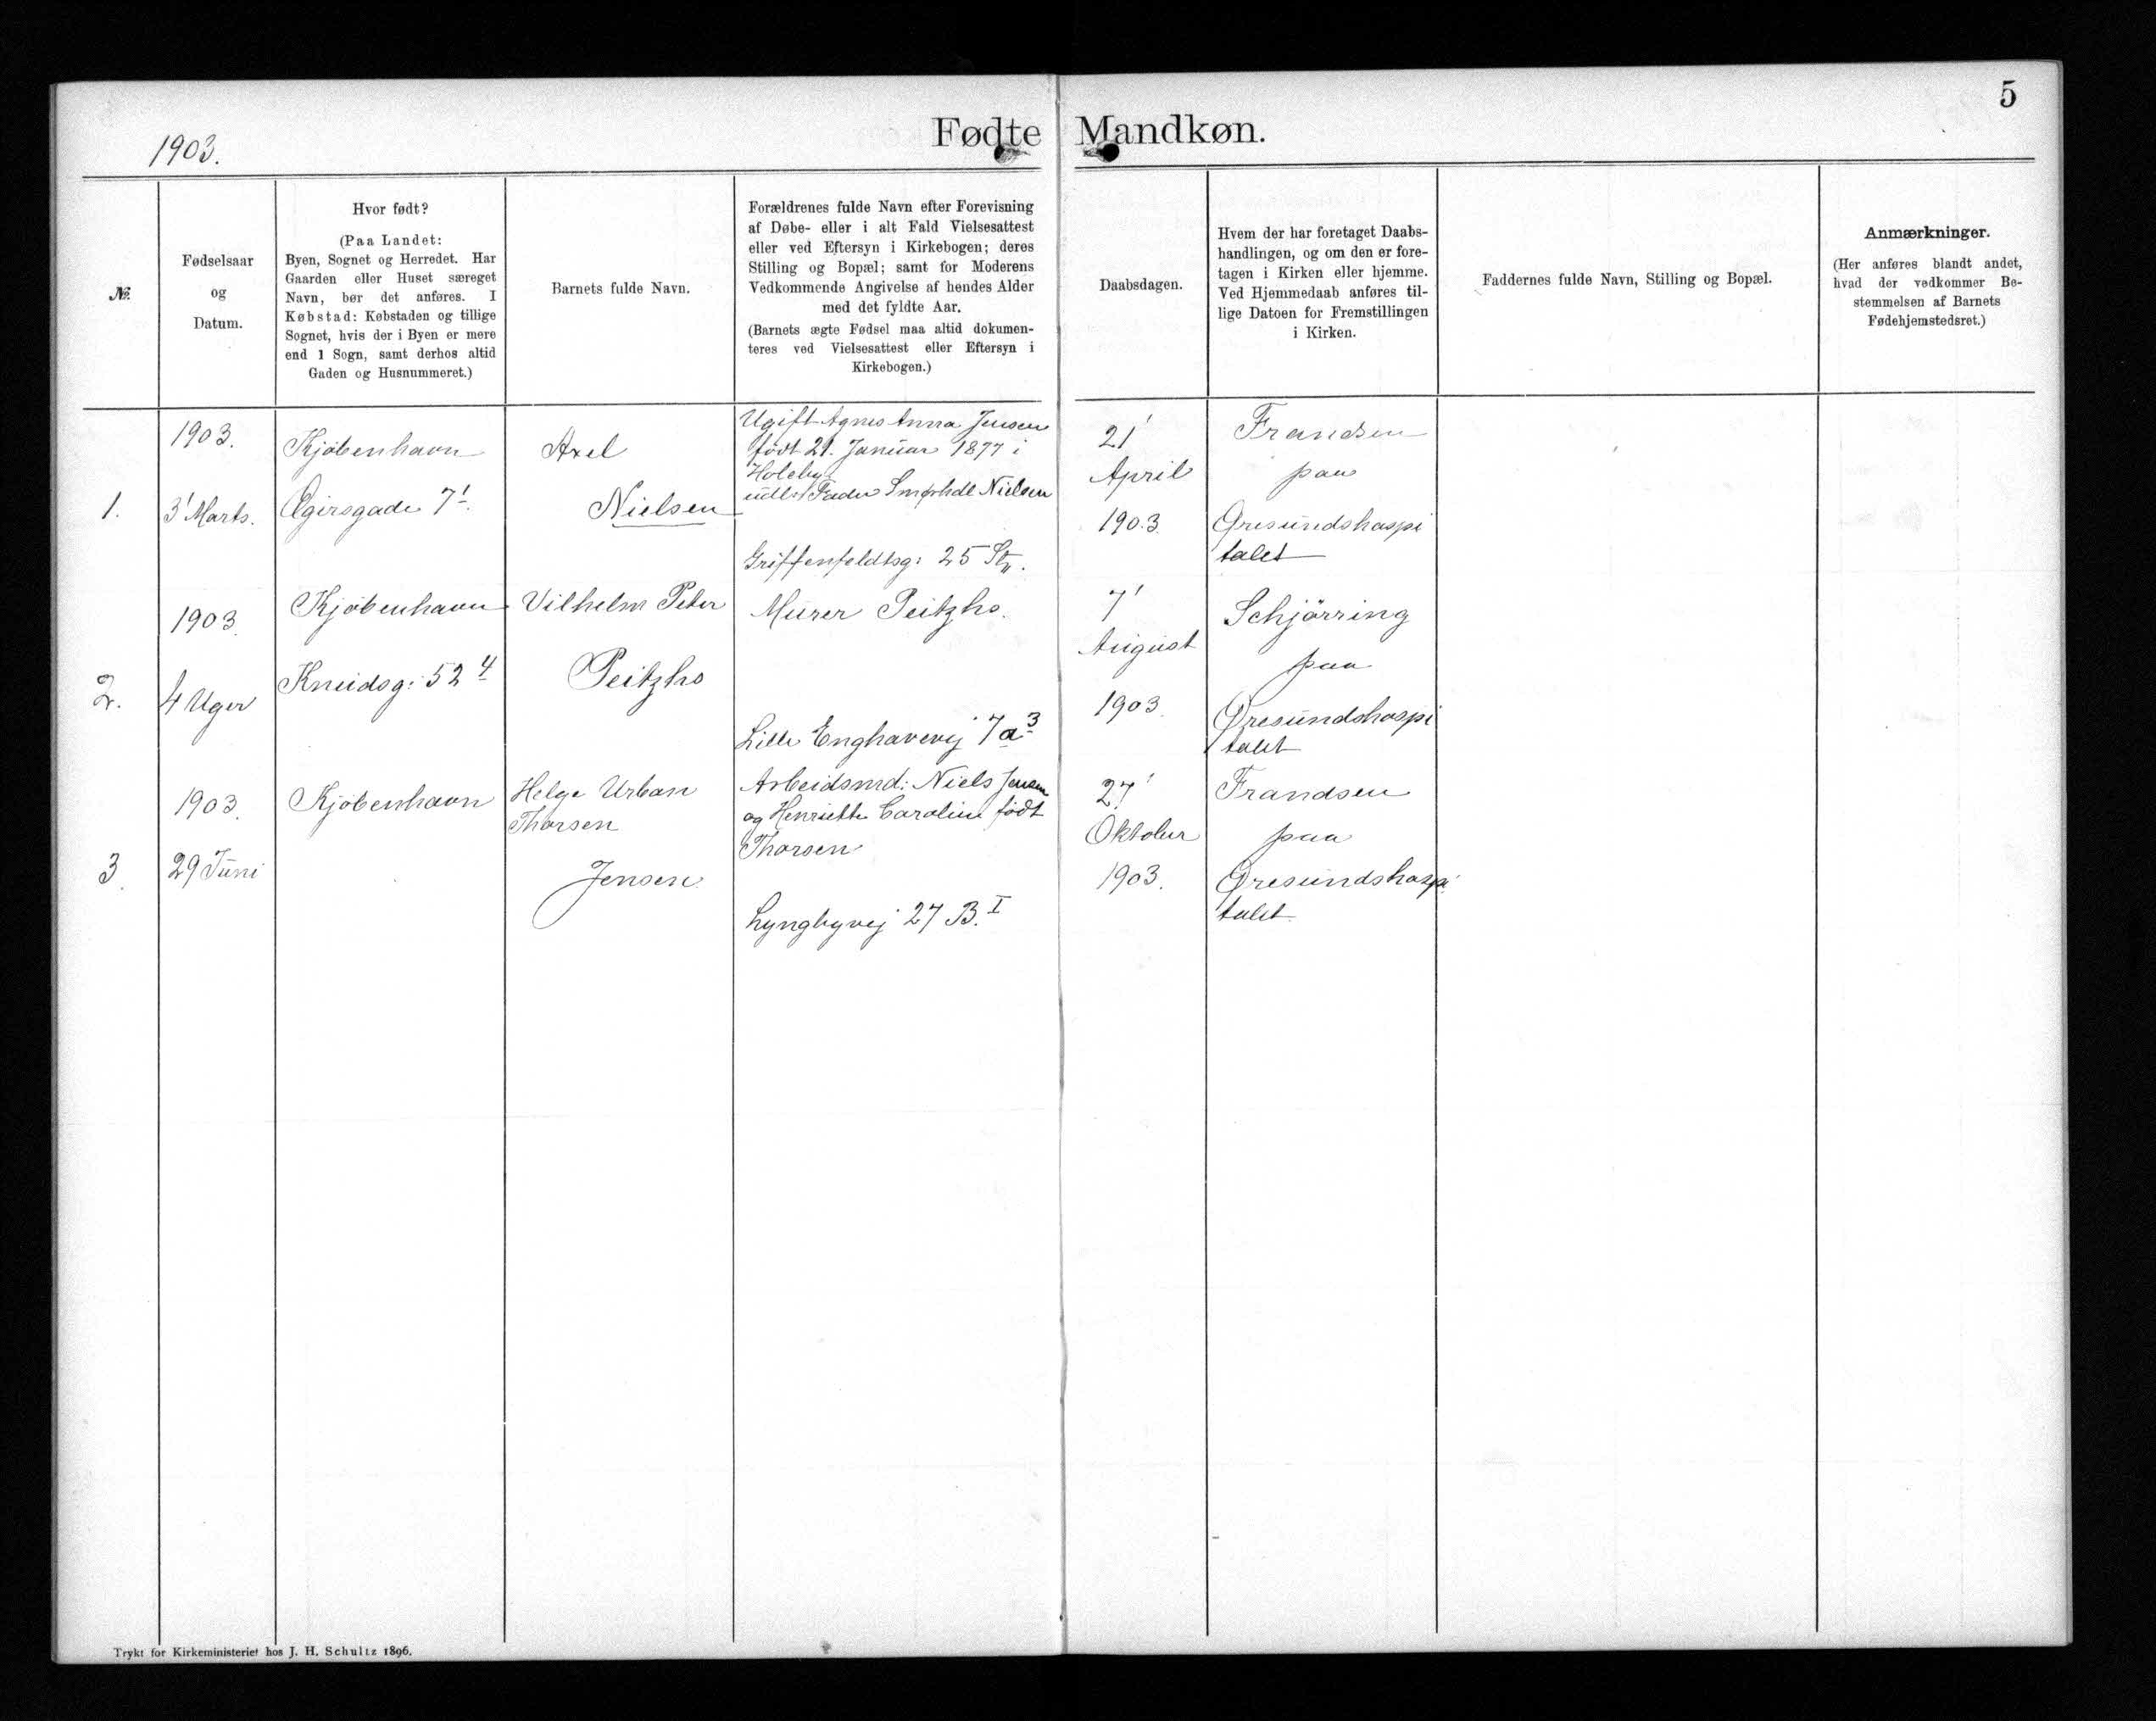 5
1903.
Fødte Mandkøn.
№.
Fødselsaar
og
Datum.
Hvor født?
(Paa Landet:
Byen, Sognet og Herredet. Har
Gaarden eller Huset særeget
Navn, bør det anføres. I
Købstad: Købstaden og tillige
Sognet, hvis der i Byen er mere
end 1 Sogn, samt derhos altid
Gaden og Husnummeret.)
Barnets fulde Navn.
Forældrenes fulde Navn efter Forevisning
af Døbe- eller i alt Fald Vielsesattest
eller ved Eftersyn i Kirkebogen; deres
Stilling og Bopæl; samt for Moderens
Vedkommende Angivelse af hendes Alder
med det fyldte Aar.
(Barnets ægte Fødsel maa altid dokumen-
teres ved Vielsesattest eller Eftersyn i
Kirkebogen.)
Daabsdagen.
Hvem der har foretaget Daabs-
handlingen, og om den er fore-
tagen i Kirken eller hjemme.
Ved Hjemmedaab anføres til-
lige Datoen for Fremstillingen
i Kirken.
Faddernes fulde Navn, Stilling og Bopæl.
Anmærkninger.
(Her anføres blandt andet,
hvad der vedkommer Be-
stemmelsen af Barnets
Fødehjemstedsret.)
1.
1903.
3' Marts.
Kjøbenhavn
Ægirsgade 7 1.
Axel
Nielsen
Ugift Agnes Anna Jensen
født 21. Januar 1877 i
Holeby
udl: Fader Smørhdl Nielsen
Griffenfeldtsg: 25 St.
21'
April
1903
Frandsen
paa
Øresundshospi
talet
2.
1903
4 Uger
Kjøbenhavn
52 4
Vilhelm Peter
Peitzho
Murer Peitzho.
Lille Enghavevej 7a 3
7'
August
1903
Schjörring
paa
Øresundshospi
talet
3
1903
29 Juni
Kjøbenhavn
Helge Urban
Thorsen
Jensen
Arbeidsmd: Niels Jensen
og Henriette Caroline født
Thorsen
Lyngbyvej 27 B. I
27'
Oktober
1903.
Frandsen
paa
Øresundshospi
talet
Trykt for Kirkeministeriet hos J. H. Schultz 1896.